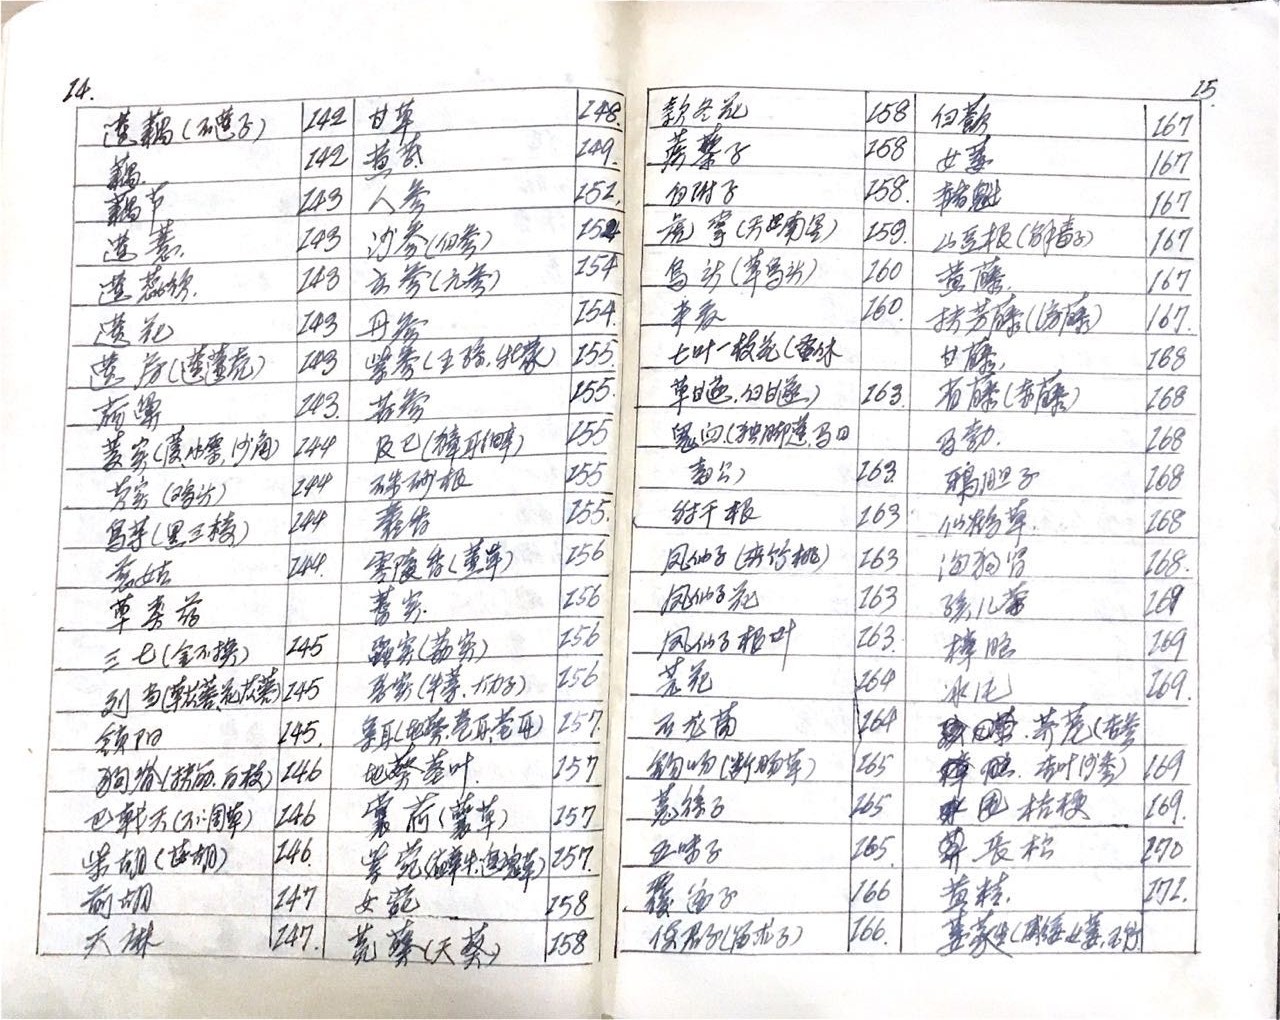 14.
莲藕(石莲子) 142 甘草 148.
藕 142 黄芪 149.
藕节 143 人参 151.
莲薏. 143 沙参(白参)
莲蕊须. 143 玄参(元参) 154
莲花 143 丹参 154.
莲房(莲蓬壳) 143 紫参(王孙.牡蒙) 155.
荷 143. 苦参 155.
菱实(菱.水栗.沙角) 144 及已(獐耳细辛) 155
芡实(鸡头) 144 硃砂根 155
乌芋(黑三棱) 144 155.
慈姑 144. 零陵香(薰草) 156
草 156
三七(金不换) 145 156
列当 145 恶实(牛蒡.大力子) 156
锁阳 145. 葈耳 157.
狗脊(扶筋.百枝) 146 地菘叶. 157
巴戟天(不凋草) 146 蘘荷(蘘草) 157
柴胡(茈胡) 146. 紫菀 157.
前胡 147 女菀 158
天麻 147. 菟葵(天葵) 158
15.
款冬花 158 白蔹 167
蒺藜子 158 女萎 167
白附子 158. 赭魁 167
虎掌(天南星) 159. 山豆根(解毒子) 167
乌头(草乌头) 160 黄藤. 167
半夏 160. 扶芳藤(滂藤) 167.
七叶一枝花(蚤休 甘藤. 168
草甘遂.白甘遂) 163. 省藤(赤藤) 168
鬼臼(独脚莲.马目 马勃. 168
毒公) 163. 鸦胆子 168
射干根 163 仙鹤草. 168
凤仙子(夹竹桃) 163 海狗肾 168.
凤仙子花 163 孩儿茶 169
凤仙子根叶 163. 樟脑 169
芫花 164 冰片 169.
石龙芮 164 荠苨(杏参
钩吻(断肠草) 165 杏叶沙参) 169
菟丝子 165 桔梗 169.
五味子 165. 长松 170
覆盆子 166 黄精. 171.
使君子(留求子) 166. 萎蕤